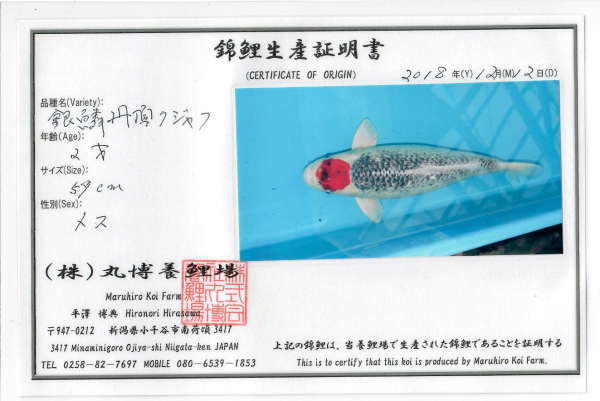 錦鯉生産証明書
(CERTIFICATE OF ORIGIN)
2018年(Y)12月(M)12日(D)
品種名(Variety):
銀鱗丹頂クジャク
年齢(Age):
2才
サイズ(Size):
59cm
性別(Sex):
メス
(株)丸博養鯉場
株式会社丸博養鯉場
Maruhiro Koi Farm
平澤 博典 Hironori Hirasawa
〒947-0212 新潟県小千谷市南荷頃 3417
3417 Minaminigoro Ojiya-shi Niigata-ken JAPAN
TEL 0258-82-7697 MOBILE 080-6539-1853
上記の錦鯉は、当養鯉場で生産された錦鯉であることを証明する
This is to certify that this koi is produced by Maruhiro Koi Farm.